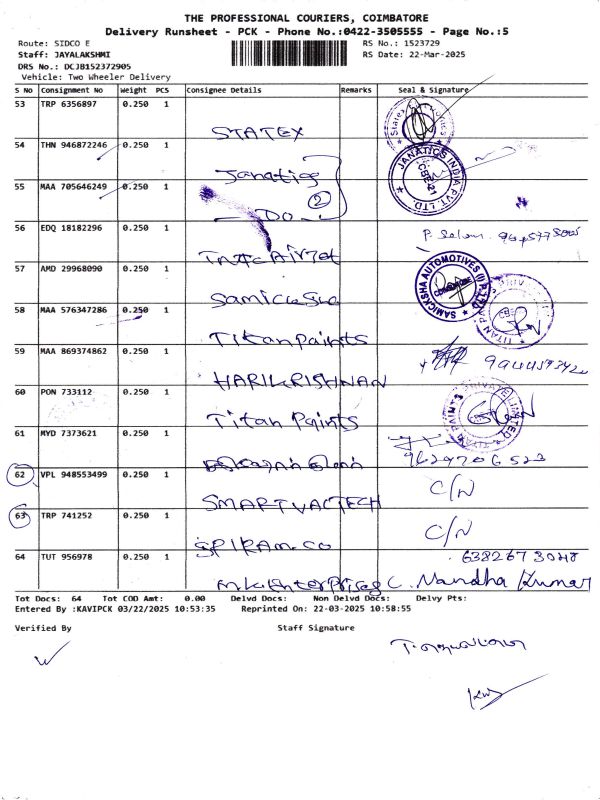 THE PROFESSIONAL COURIERS, COIMBATORE
Delivery Runsheet - PCK - Phone No.:0422-3505555 - Page No.:5
Route: SIDCO E RS No.: 1523729
Staff: JAYALAKSHMI RS Date: 22-Mar-2025
DRS No.: DCJB152372905
Vehicle: Two Wheeler Delivery
S No Consignment No Weight PCS Consignee Details Remarks Seal & Signature
53 TRP 6356897 0.250 1
STATEX
54 THN 946872246 0.250 1
Janatics
JANATICS INDIA PVT. LTD. CBE-21
55 MAA 705646249 0.250 1
DO 2
56 EDQ 18182296 0.250 1
57 AMD 29968090 0.250 1
SAMICKSHA AUTOMOTIVES (I) P LTD COIMBATORE
58 MAA 576347286 0.250 1
Titan Paints
TITAN PAINTS PRIVATE
59 MAA 869374862 0.250 1
HARIKRISHNAN
60 PON 733112 0.250 1
Titan Paints
TITAN PAINTS PRIVATE LIMITED
61 MYD 7373621 0.250 1
9629706523
62 VPL 948553499 0.250 1
SMARTVACTECH C/N
63 TRP 741252 0.250 1
SPIRAM.CO C/N
64 TUT 956978 0.250 1
Enterprises C. Nandha Kumar
Tot Docs: 64 Tot COD Amt: 0.00 Delvd Docs: Non Delvd Docs: Delvy Pts:
Entered By :KAVIPCK 03/22/2025 10:53:35 Reprinted On: 22-03-2025 10:58:55
Verified By Staff Signature